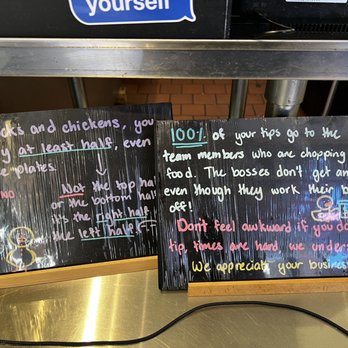 yourself
and chickens, you
at least half, even
plates.
NO
Not the top ha
or the bottom half
it's the right half
the left half
100% of your tips go to the
team members who are chopping
food. The bosses don't get an
even though they work their b
off!
Don't feel awkward if you do
tip, times are hard, we unders
We appreciate your busines